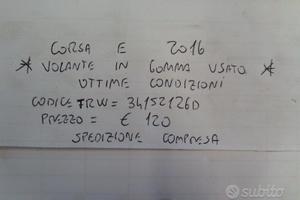 CORSA E 2016
* VOLANTE IN GOMMA USATO *
OTTIME CONDIZIONI
CODICE TRW = 34152126D
PREZZO = € 120
SPEDIZIONE COMPRESA
subito